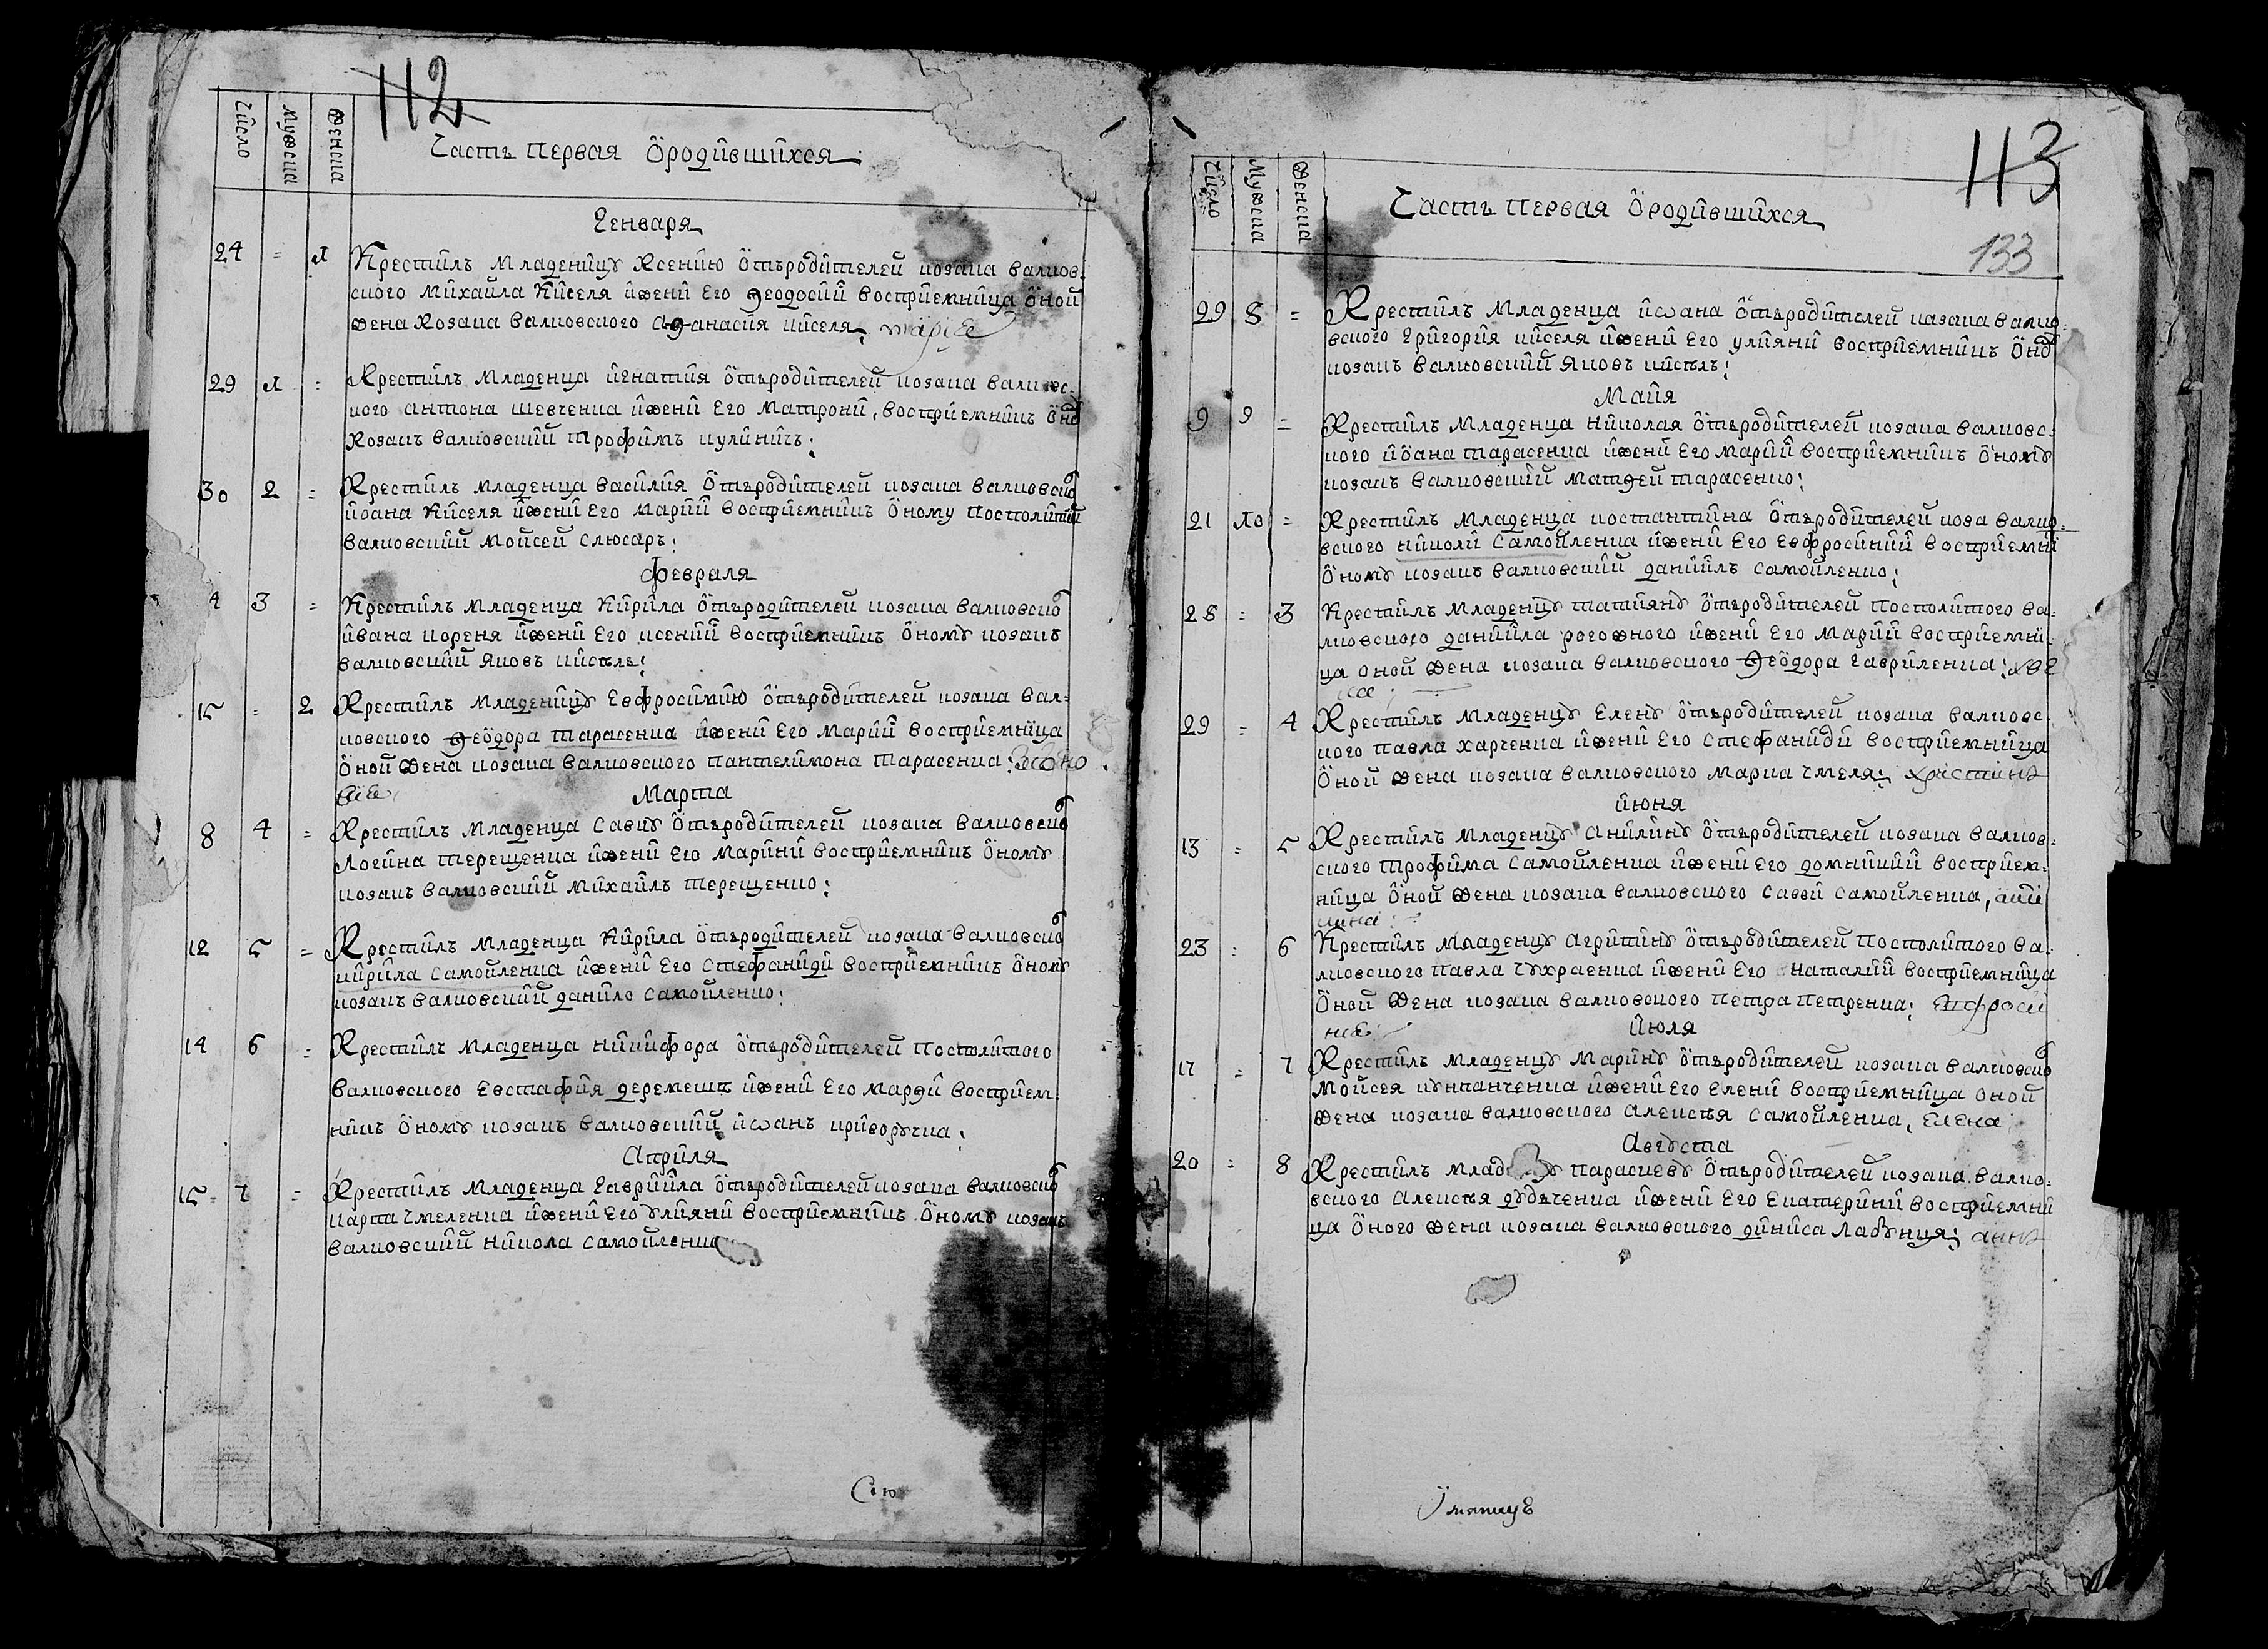 112
Число Мужска Женска
Часть Первая Ѽродившихся
Генваря
24 = 1 Крестилъ Младеницꙋ Ксению Ѿъродителей козака валков-
ского Михайла Киселя иженй Его Ѳеодосий восприемница Ѽной
жена Козака валковского аѳанасия киселя; маріѣ
29 1 = Крестилъ Младенца игнатия Ѿъродителей козака валковс-
кого антона шевченка иженй Его Матронй, восприемникъ Ѽнꙋ
Козакъ валковский трофимъ кулиничъ;
30 2 = Крестилъ младенца василия Ѿъродителей козака валковско
иоана Киселя иженй Его Марий восприемникъ Ѽному Посполитий
валковский Мойсей слюсаръ;
февраля
4 3 = Крестилъ Младенца Кирила Ѿъродителей козака валковско
ивана кореня иженй Его ксений восприемникъ Ѽномꙋ козакъ
валковский Яковъ кисѣль;
15 = 2 Крестилъ младеницꙋ Евфросинию Ѿъродителей козака вал-
ковского Ѳеѽдора тарасенка иженй Его Марий восприемница
Ѽной жена козака валковского пантелимона тарасенка;
Марта
8 4 = Крестилъ Младенца савꙋ Ѿъродителей козака валковско
Логина терещенка иженй Его Маринй восприемникъ Ѽномꙋ
козакъ валковский Михайлъ терещенко;
12 5 = Крестилъ Младенца Кирила Ѿъродителей козака валковско
кирила самойленка иженй Его стефанидй восприемникъ Ѽномꙋ
козакъ валковский данило самойленко;
14 6 = Крестилъ Младенца никифора Ѿъродителей Посполитого
валковского Евстафия деремешк иженй Его Марѳй восприем-
никъ Ѽномꙋ козакъ валковский иѡанъ криворꙋчка;
Априля
15 7 = Крестилъ Младенца гавриила Ѿъродителей козака валковско
марка чмеленка иженй Его ꙋлиянй восприемникъ Ѽномꙋ козакъ
валковский никола самойленко
Сію
113
133
Число Мужска Женска
Часть Первая Ѽродившихся
29 8 = Крестилъ Младенца иѡана Ѿъродителей казака валко-
вского григория киселя иженй Его улиянй восприемникъ Ѽнꙋ
козакъ валковский Яковъ кисѣль;
Майя
9 9 = Крестилъ Младенца николая Ѿъродителей козака валковс-
кого иѽана тарасенка иженй Его Марий восприемникъ Ѽномꙋ
козакъ валковский Матѳей тарасенко;
21 10 = Крестилъ Младенца костантина Ѿъродителей коза валко-
вского николи самойленка иженй Его Евфросиний восприемни
Ѽномꙋ козакъ валковский даниилъ самойленко;
28 = 3 Крестилъ Младенцꙋ татиянꙋ Ѿъродителей посполитого ва-
лковского даниила рогожного иженй Его Марий восприемни-
ца Ѽной жена козака валковского Ѳеѽдора гавриленка;
29 = 4 Крестилъ Младенцꙋ Еленꙋ Ѿъродителей козака валковс-
кого павла харченка иженй Его стефанидй восприемница
Ѽной жена козака валковского Марка чмеля; христинѣ
июня
13 = 5 Крестилъ Младенцꙋ акилинꙋ Ѿъродителей козака валков-
ского трофима самойленка иженй Его домникий восприем-
ница Ѽной жена козака валковского саввй самойленка, аки
лина;
23 = 6 Крестилъ Младенцꙋ агрипинꙋ Ѿъродителей посполитого ва-
лковского павла чꙋхраенка иженй Его наталий восприемница
Ѽной жена козака валковского петра петренка; Эѵфроси
ніѣ
июля
17 = 7 Крестилъ Младенцꙋ Маринꙋ Ѿъродителей козака валковско
Мойсея кꙋкпанченка иженй Его Еленй восприемница оной
жена козака валковского алексѣя самойленка, Елена
Авгꙋста
20 = 8 Крестилъ Млад ꙋ параскевꙋ Ѿъродителей козака валко-
вского алексѣя дꙋдѣченка иженй Его Екатеринй восприемни
ца Ѽного жена козака валковского диниса Лабꙋнця; аннѣ